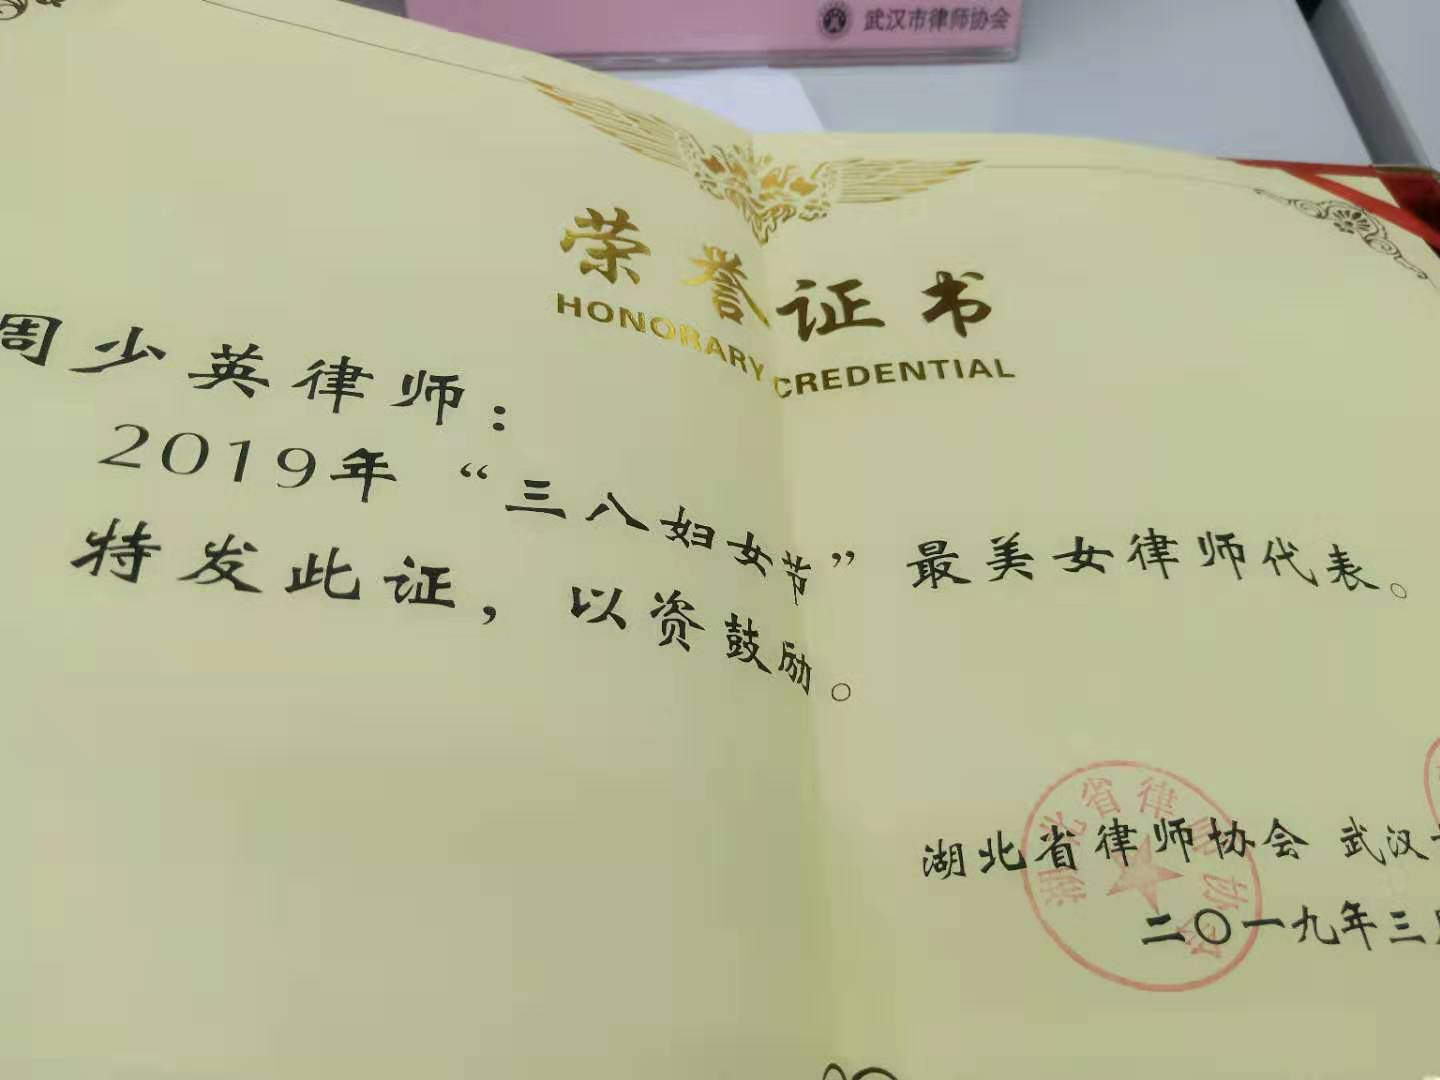 武汉市律师协会
荣誉证书
HONORARY CREDENTIAL
周少英律师：
2019年“三八妇女节”最美女律师代表。
特发此证，以资鼓励。
湖北省律师协会 武汉
二〇一九年三
湖北省律师协会